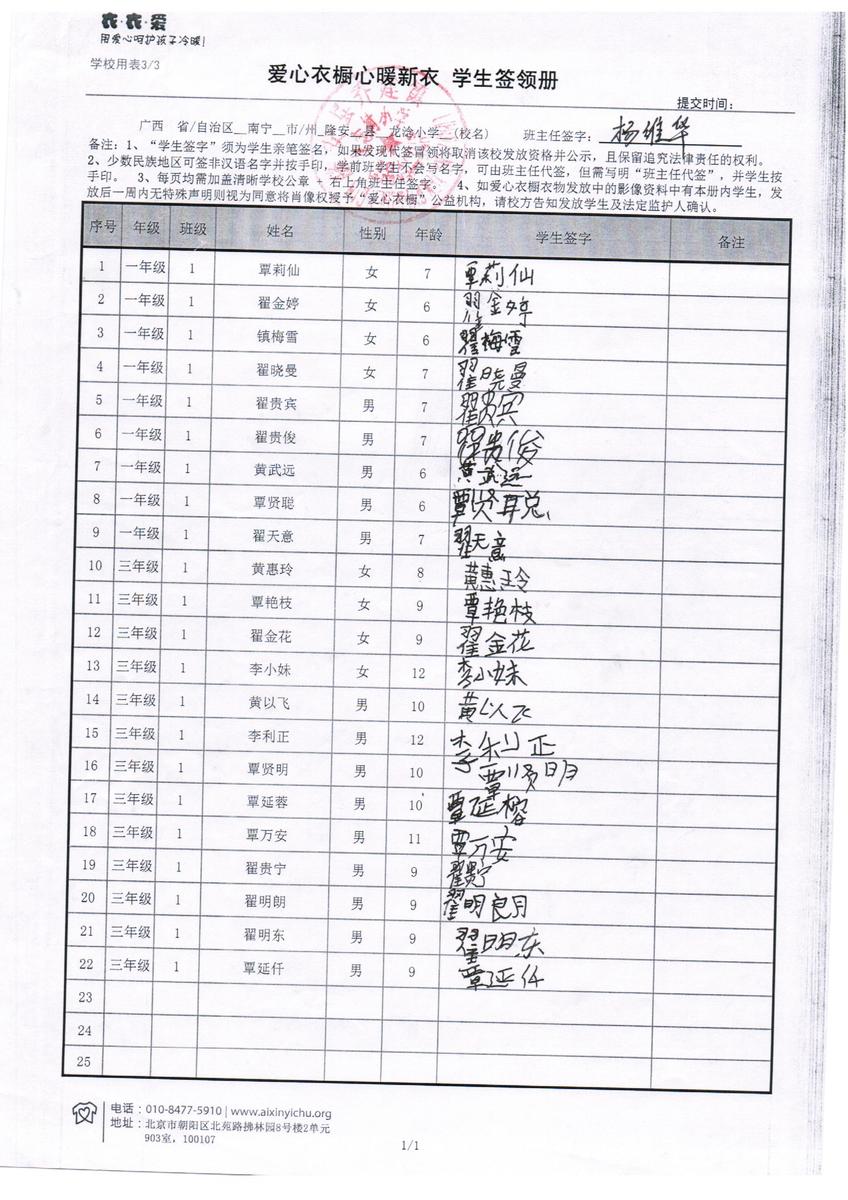 衣·衣·爱
用爱心呵护孩子冷暖!
学校用表3/3
爱心衣橱心暖新衣 学生签领册
提交时间:
广西 省/自治区__南宁__市/州_隆安__县 龙洽小学__(校名) 班主任签字: 杨维华
备注:1、“学生签字”须为学生亲笔签名,如果发现代签冒领将取消该校发放资格并公示,且保留追究法律责任的权利。
2、少数民族地区可签非汉语名字并按手印,学前班学生不会写名字,可由班主任代签,但需写明“班主任代签”,并学生按
手印。 3、每页均需加盖清晰学校公章,右上角班主任签字。 4、如爱心衣橱衣物发放中的影像资料中有本册内学生,发
放后一周内无特殊声明则视为同意将肖像权授予“爱心衣橱”公益机构,请校方告知发放学生及法定监护人确认。
序号 年级 班级 姓名 性别 年龄 学生签字 备注
1 一年级 1 覃莉仙 女 7 覃莉仙
2 一年级 1 翟金婷 女 6 翟金婷
3 一年级 1 镇梅雪 女 6 翟梅雪
4 一年级 1 翟晓曼 女 7 翟晓曼
5 一年级 1 翟贵宾 男 7 翟贵宾
6 一年级 1 翟贵俊 男 7 翟贵俊
7 一年级 1 黄武远 男 6 黄武远
8 一年级 1 覃贤聪 男 6 覃贤聪
9 一年级 1 翟天意 男 7 翟天意
10 三年级 1 黄惠玲 女 8 黄惠玲
11 三年级 1 覃艳枝 女 9 覃艳枝
12 三年级 1 翟金花 女 9 翟金花
13 三年级 1 李小妹 女 12 李小妹
14 三年级 1 黄以飞 男 10 黄以飞
15 三年级 1 李利正 男 12 李利正
16 三年级 1 覃贤明 男 10 覃贤明
17 三年级 1 覃延蓉 男 10 覃延榕
18 三年级 1 覃万安 男 11 覃万安
19 三年级 1 翟贵宁 男 9 翟贵宁
20 三年级 1 翟明朗 男 9 翟明朗
21 三年级 1 翟明东 男 9 翟明东
22 三年级 1 覃延仟 男 9 覃延仟
23
24
25
电话:010-8477-5910 | www.aixinyichu.org
地址:北京市朝阳区北苑路拂林园8号楼2单元
903室,100107
1/1